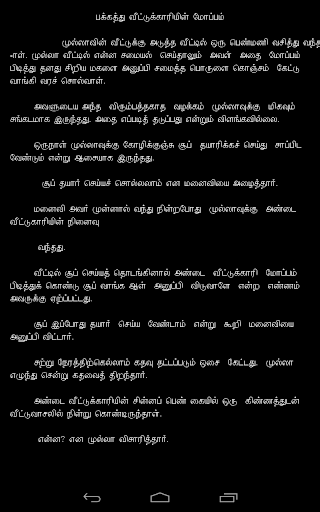 பக்கத்து வீட்டுக்காரியின் மோப்பம்
முல்லாவின் வீட்டுக்கு அடுத்த வீட்டில் ஒரு பெண்மணி வசித்து வந்த
-ாள். முல்லா வீட்டில் என்ன சமையல் செய்தாலும் அவள் அதை மோப்பம்
பிடித்து தனது சிறிய மகளை அனுப்பி சமைத்த பொருளை கொஞ்சம் கேட்டு
வாங்கி வரச் சொல்வாள்.
அவளுடைய அந்த விரும்பத்தகாத வழக்கம் முல்லாவுக்கு மிகவும்
சங்கடமாக இருந்தது. அதை எப்படித் தடுப்பது என்றும் விளங்கவில்லை.
ஒருநாள் முல்லாவுக்கு கோழிக்குஞ்சு சூப் தயாரிக்கச் செய்து சாப்பிட
வேண்டும் என்று ஆசையாக இருந்தது.
சூப் தயார் செய்யச் சொல்லலாம் என மனைவியை அழைத்தார்.
மனைவி அவர் முன்னால் வந்து நின்றபோது முல்லாவுக்கு அண்டை
வீட்டுகாரியின் நினைவு
வந்தது.
வீட்டில் சூப் செய்யத் தொடங்கினால் அண்டை வீட்டுக்காரி மோப்பம்
பிடித்துக் கொண்டு சூப் வாங்க ஆள் அனுப்பி விடுவாளே என்ற எண்ணம்
அவருக்கு ஏற்ப்பட்டது.
சூப் இப்போது தயார் செய்ய வேண்டாம் என்று கூறி மனைவியை
அனுப்பி விட்டார்.
சற்று நேரத்திற்கெல்லாம் கதவு தட்டப்படும் ஓசை கேட்டது. முல்லா
எழுந்து சென்று கதவைத் திறந்தார்.
அண்டை வீட்டுக்காரியின் சின்னப் பெண் கையில் ஒரு கிண்ணத்துடன்
வீட்டுவாசலில் நின்று கொண்டிருந்தாள்.
என்ன? என முல்லா விசாரித்தார்.